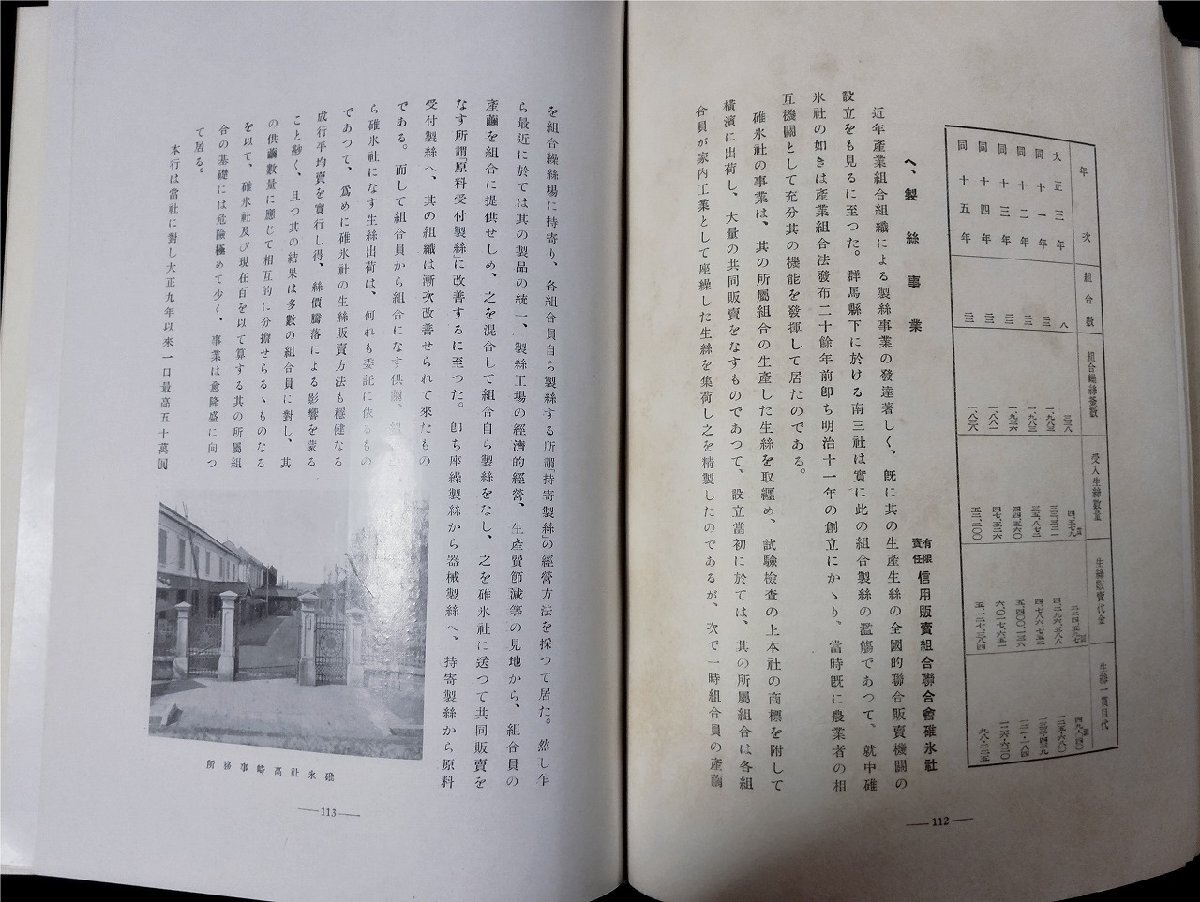 年次 組合數 組合繰絲釜數 受入生絲數量 生絲販賣代金 生絲一貫目代
大正三年 八
同十一年
同十二年
同十三年
同十四年
同十五年
へ、製絲事業
有限責任 信用販賣組合聯合會碓氷社
近年產業組合組織による製絲事業の發達著しく、既に其の生產生絲の全國的聯合販賣機關の
設立をも見るに至つた。群馬縣下に於ける南三社は實に此の組合製絲の濫觴であつて、就中碓
氷社の如きは產業組合法發布二十餘年前卽ち明治十一年の創立にかゝり、當時既に農業者の相
互機關として充分其の機能を發揮して居たのである。
碓氷社の事業は、其の所屬組合の生產した生絲を取纒め、試驗檢查の上本社の商標を附して
橫濱に出荷し、大量の共同販賣をなすものであつて、設立當初に於ては、其の所屬組合は各組
合員が家內工業として座繰した生絲を集荷し之を精製したのであるが、次で一時組合員の產繭
—112—
を組合繰絲場に持寄り、各組合員自ら製絲する所謂「持寄製絲」の經營方法を採つて居た。然し乍
ら最近に於ては其の製品の統一、製絲工場の經濟的經營、生產費節減等の見地から、組合員の
產繭を組合に提供せしめ、之を混合して組合自ら製絲をなし、之を碓氷社に送つて共同販賣を
なす所謂「原料受付製絲」に改善するに至つた。卽ち座繰製絲から器械製絲へ、持寄製絲から原料
受付製絲へ、其の組織は漸次改善せられて來たもの
である。而して組合員から組合になす供繭、
ら碓氷社になす生絲出荷は、何れも委託に依るもの
であつて、爲めに碓氷社の生絲販賣方法も穩健なる
成行平均賣を實行し得、絲價騰落による影響を蒙る
こと尠く、且つ其の結果は多數の組合員に對し、其
の供繭數量に應じて相互的に分擔せらるゝものなる
を以て、碓氷社及び現在百を以て算する其の所屬組
合の基礎には危險極めて少く、事業は愈隆盛に向つ
て居る。
本行は當社に對し大正九年以來一口最高五十萬圓
碓氷社高崎事務所
—113—